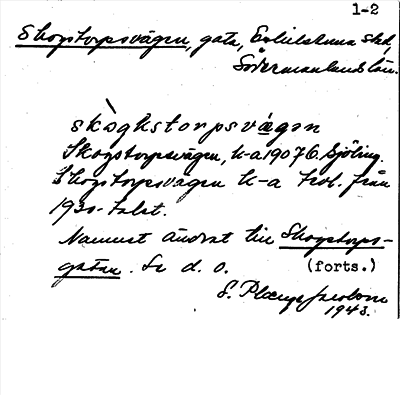 1-2
Skogstorpsvägen, gata, Eskilstuna stad,
Södermanlands län.
skògkstorpsvägən
Skogstorpsvägen, k-a 1907 G. Sjöling.
Skogstorpsvägen k-a prot. från
1930-talet.
Namnet ändrat till Skogstorps-
gatan. Se d. o.
(forts.)
S.
1943.